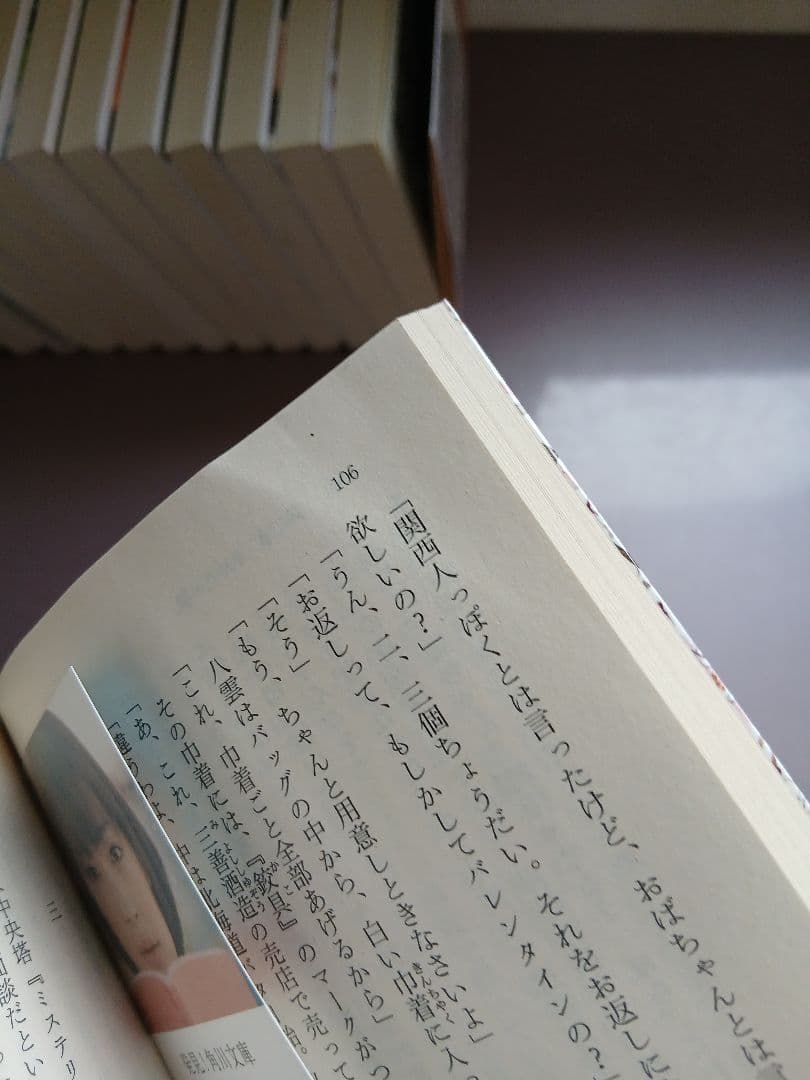 106
「関西人っぽくとは言ったけど、おばちゃんとは言
欲しいの？」
「うん、二、三個ちょうだい。それをお返しに
「お返しって、もしかしてバレンタインの？」
「そう」
「もう、ちゃんと用意しときなさいよ」
八雲はバッグの中から、白い巾着に入っ
「これ、巾着ごと全部あげるから」
その巾着には、『鉸具』のマークがつ
「あ、これ、三善酒造の売店で売って
「違うわよ、中は北海道バタ
三
中央塔『ミステリ
相談だとい
発見！角川文庫